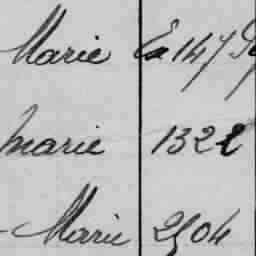 Marie Ea 147
marie 1322
Marie 2504